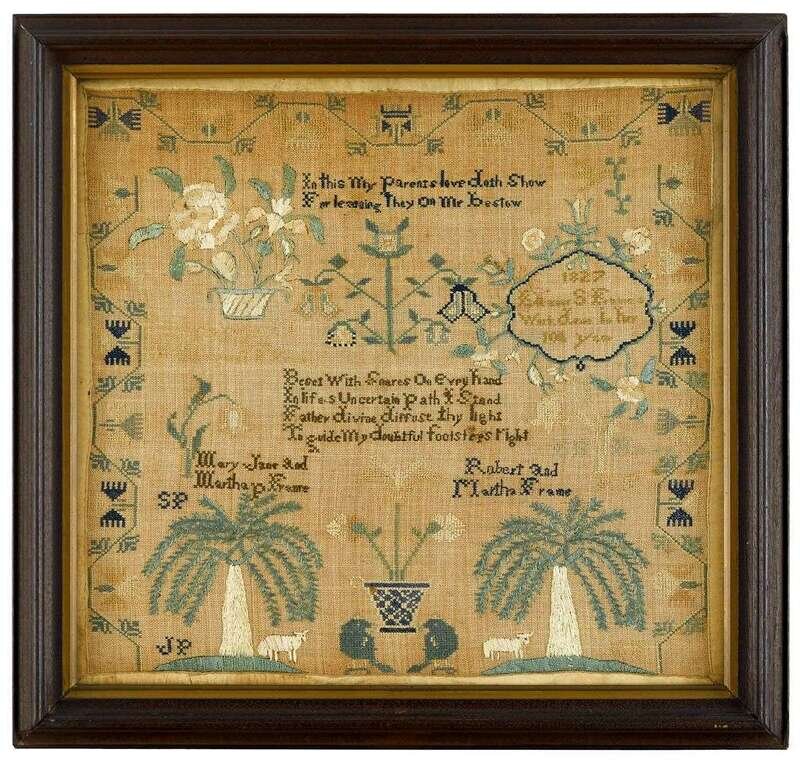 In this My parents love doth Show
For learning they On Me bestow
1827
S Frame
Work done in her
10th year
Beset With Snares On Evry hand
In lifes Uncertain path I Stand
Father divine diffuse thy light
To guide My doubtful footsteps right
Mary Jane and
Martha P Frame
Robert and
Martha Frame
SP
JP